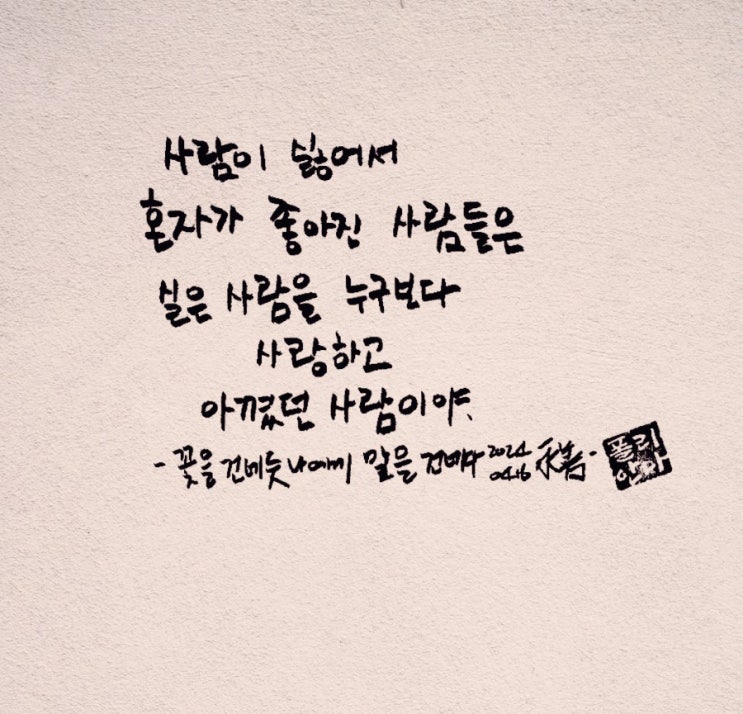 사람이 싫어서
혼자가 좋아진 사람들은
실은 사람을 누구보다
사랑하고
아꼈던 사람이야.
- 꽃을 건네듯 나에게 말을 건네다 2024 04.16 -
폴리